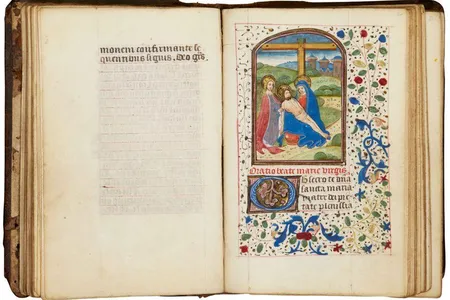 monem confirmante se
quentibus signis. Deo grs.
Oratio beate marie virgis
Obsecro te dna
sancta maria
mater dei pie
tate plenissia